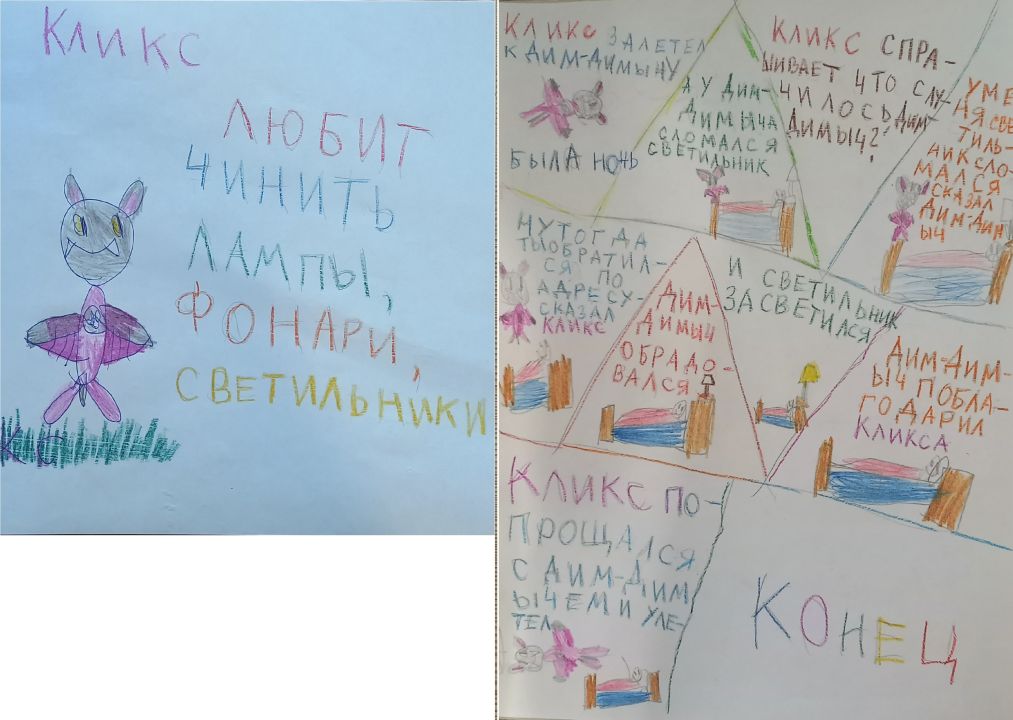 КЛИКС
ЛЮБИТ
ЧИНИТЬ
ЛАМПЫ,
ФОНАРИ,
СВЕТИЛЬНИКИ
КС
КЛИКС ЗАЛЕТЕЛ
К ДИМ-ДИМЫЧУ
БЫЛА НОЧЬ
А У ДИМ-
ДИМЫЧА
СЛОМАЛСЯ
СВЕТИЛЬНИК
КЛИКС СПРА-
ШИВАЕТ ЧТО СЛУ-
ЧИЛОСЬ ДИМ-
ДИМЫЧ?
У МЕ
НЯ СВЕ
ТИЛЬ-
НИК СЛО-
МАЛСЯ
СКАЗАЛ
ДИМ-ДИМ
ЫЧ
НУ ТОГДА
ТЫ ОБРАТИЛ-
СЯ ПО
АДРЕСУ-
СКАЗАЛ
КЛИКС
ДИМ-
ДИМЫЧ
ОБРАДО-
ВАЛСЯ
И СВЕТИЛЬНИК
ЗАСВЕТИЛСЯ
ДИМ-ДИМ-
ЫЧ ПОБЛА-
ГОДАРИЛ
КЛИКСА
КЛИКС ПО-
ПРОЩАЛСЯ
С ДИМ-ДИМ
ЫЧЕМ И УЛЕ-
ТЕЛ
КОНЕЦ